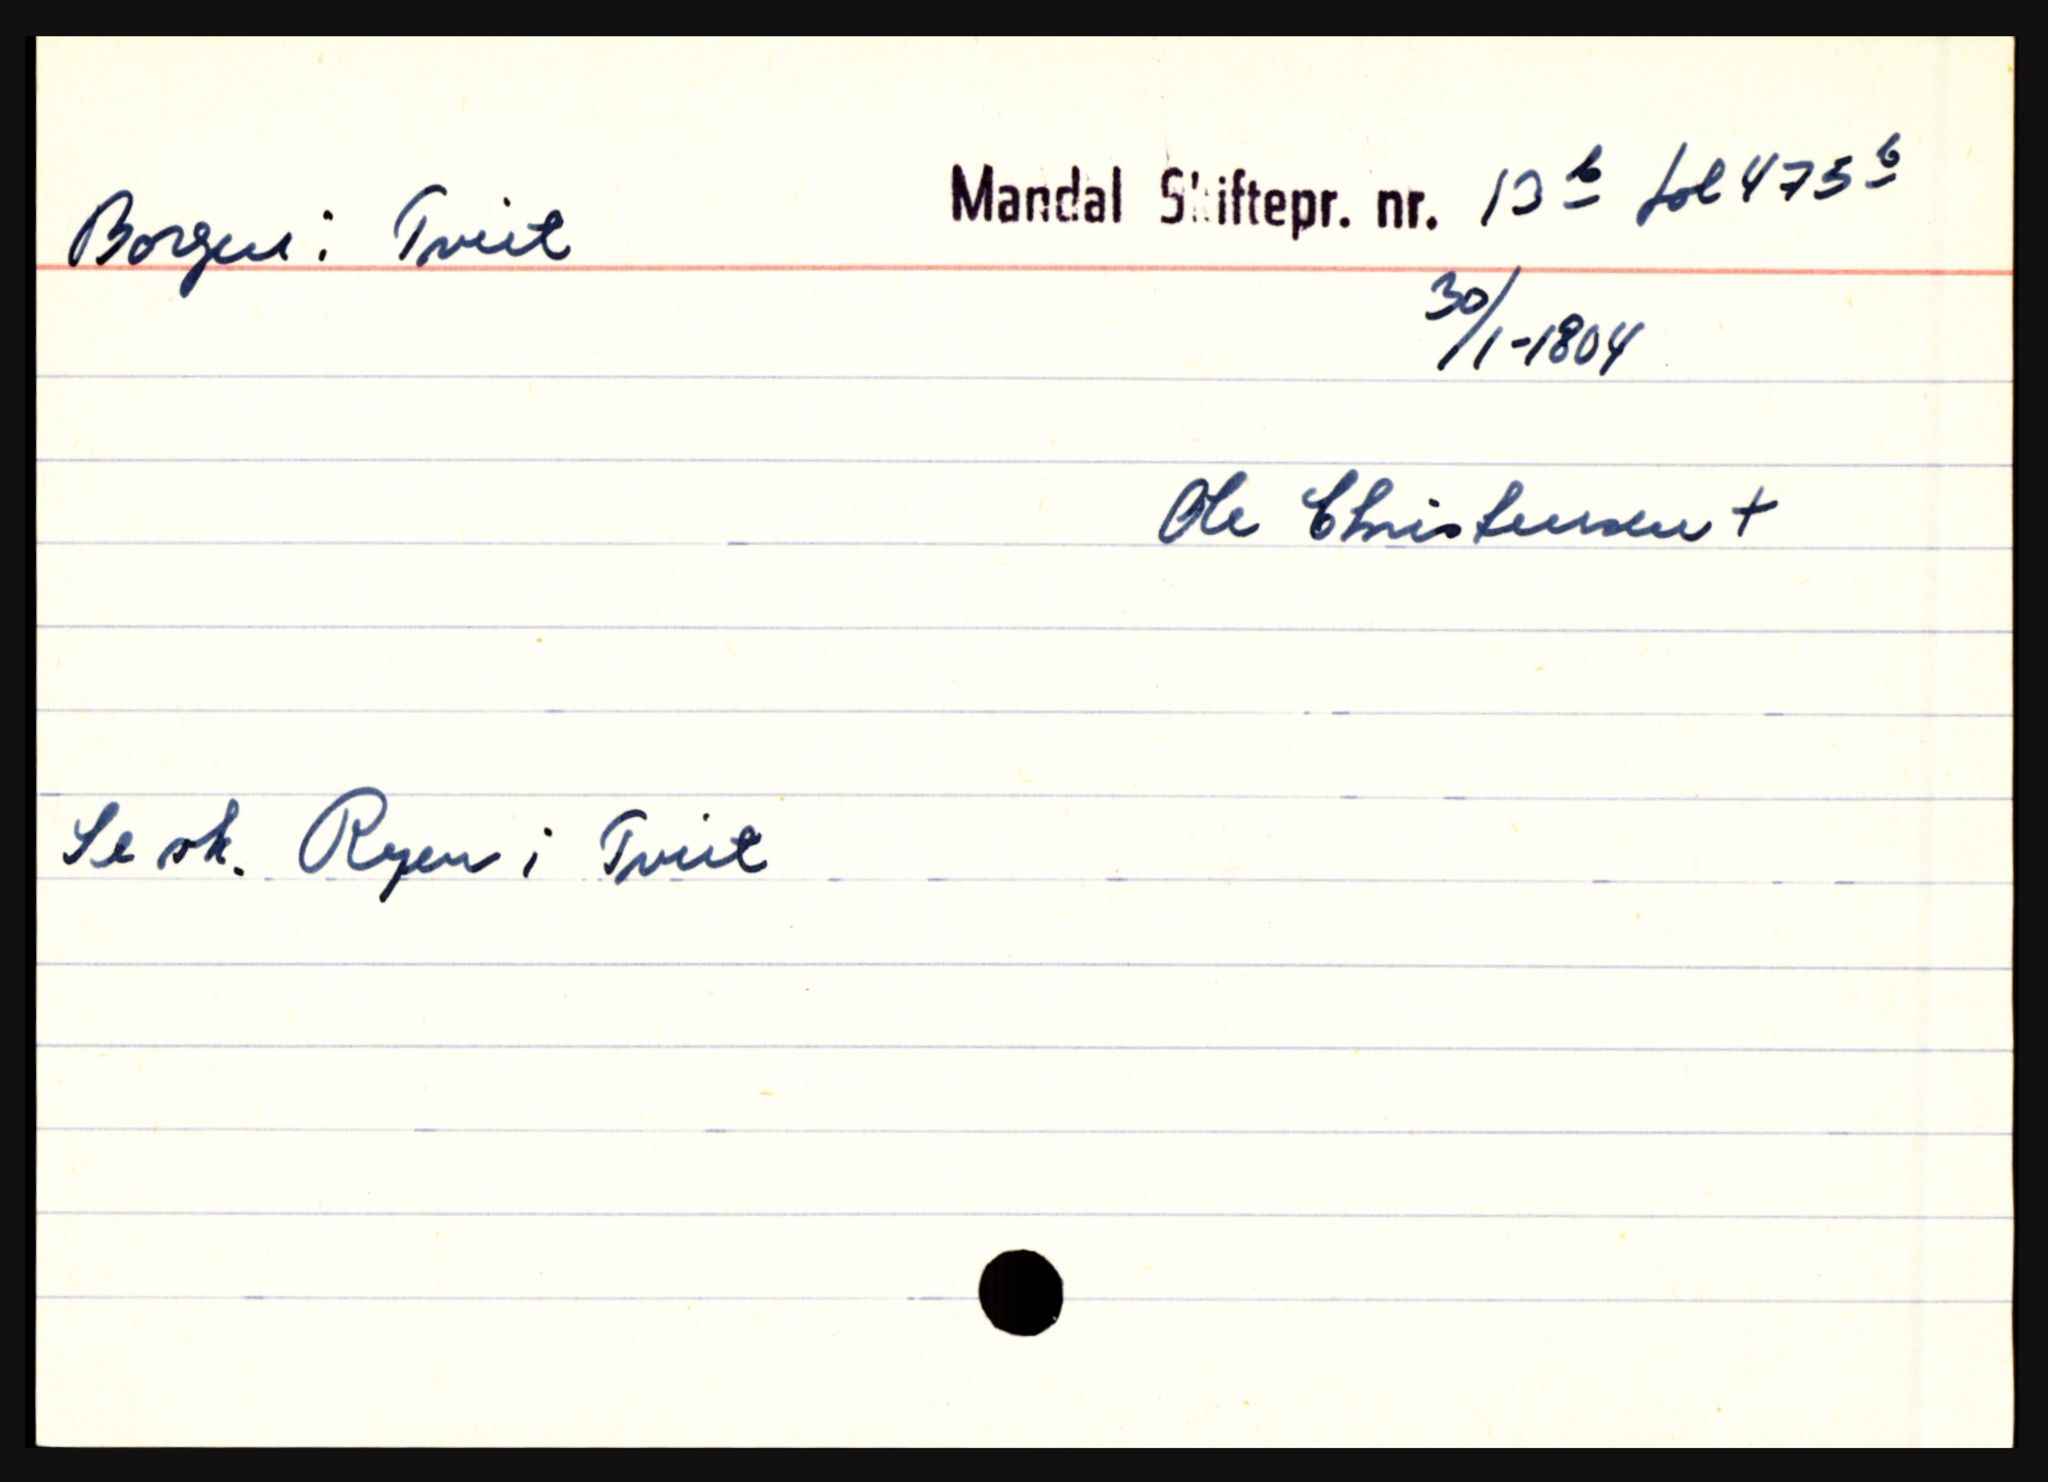 Borgen i Tveit
Mandal Skiftepr. nr. 13 b fol 475 b
30/1-1804
Ole Christensen +
Se sk. Ryen i Tveit